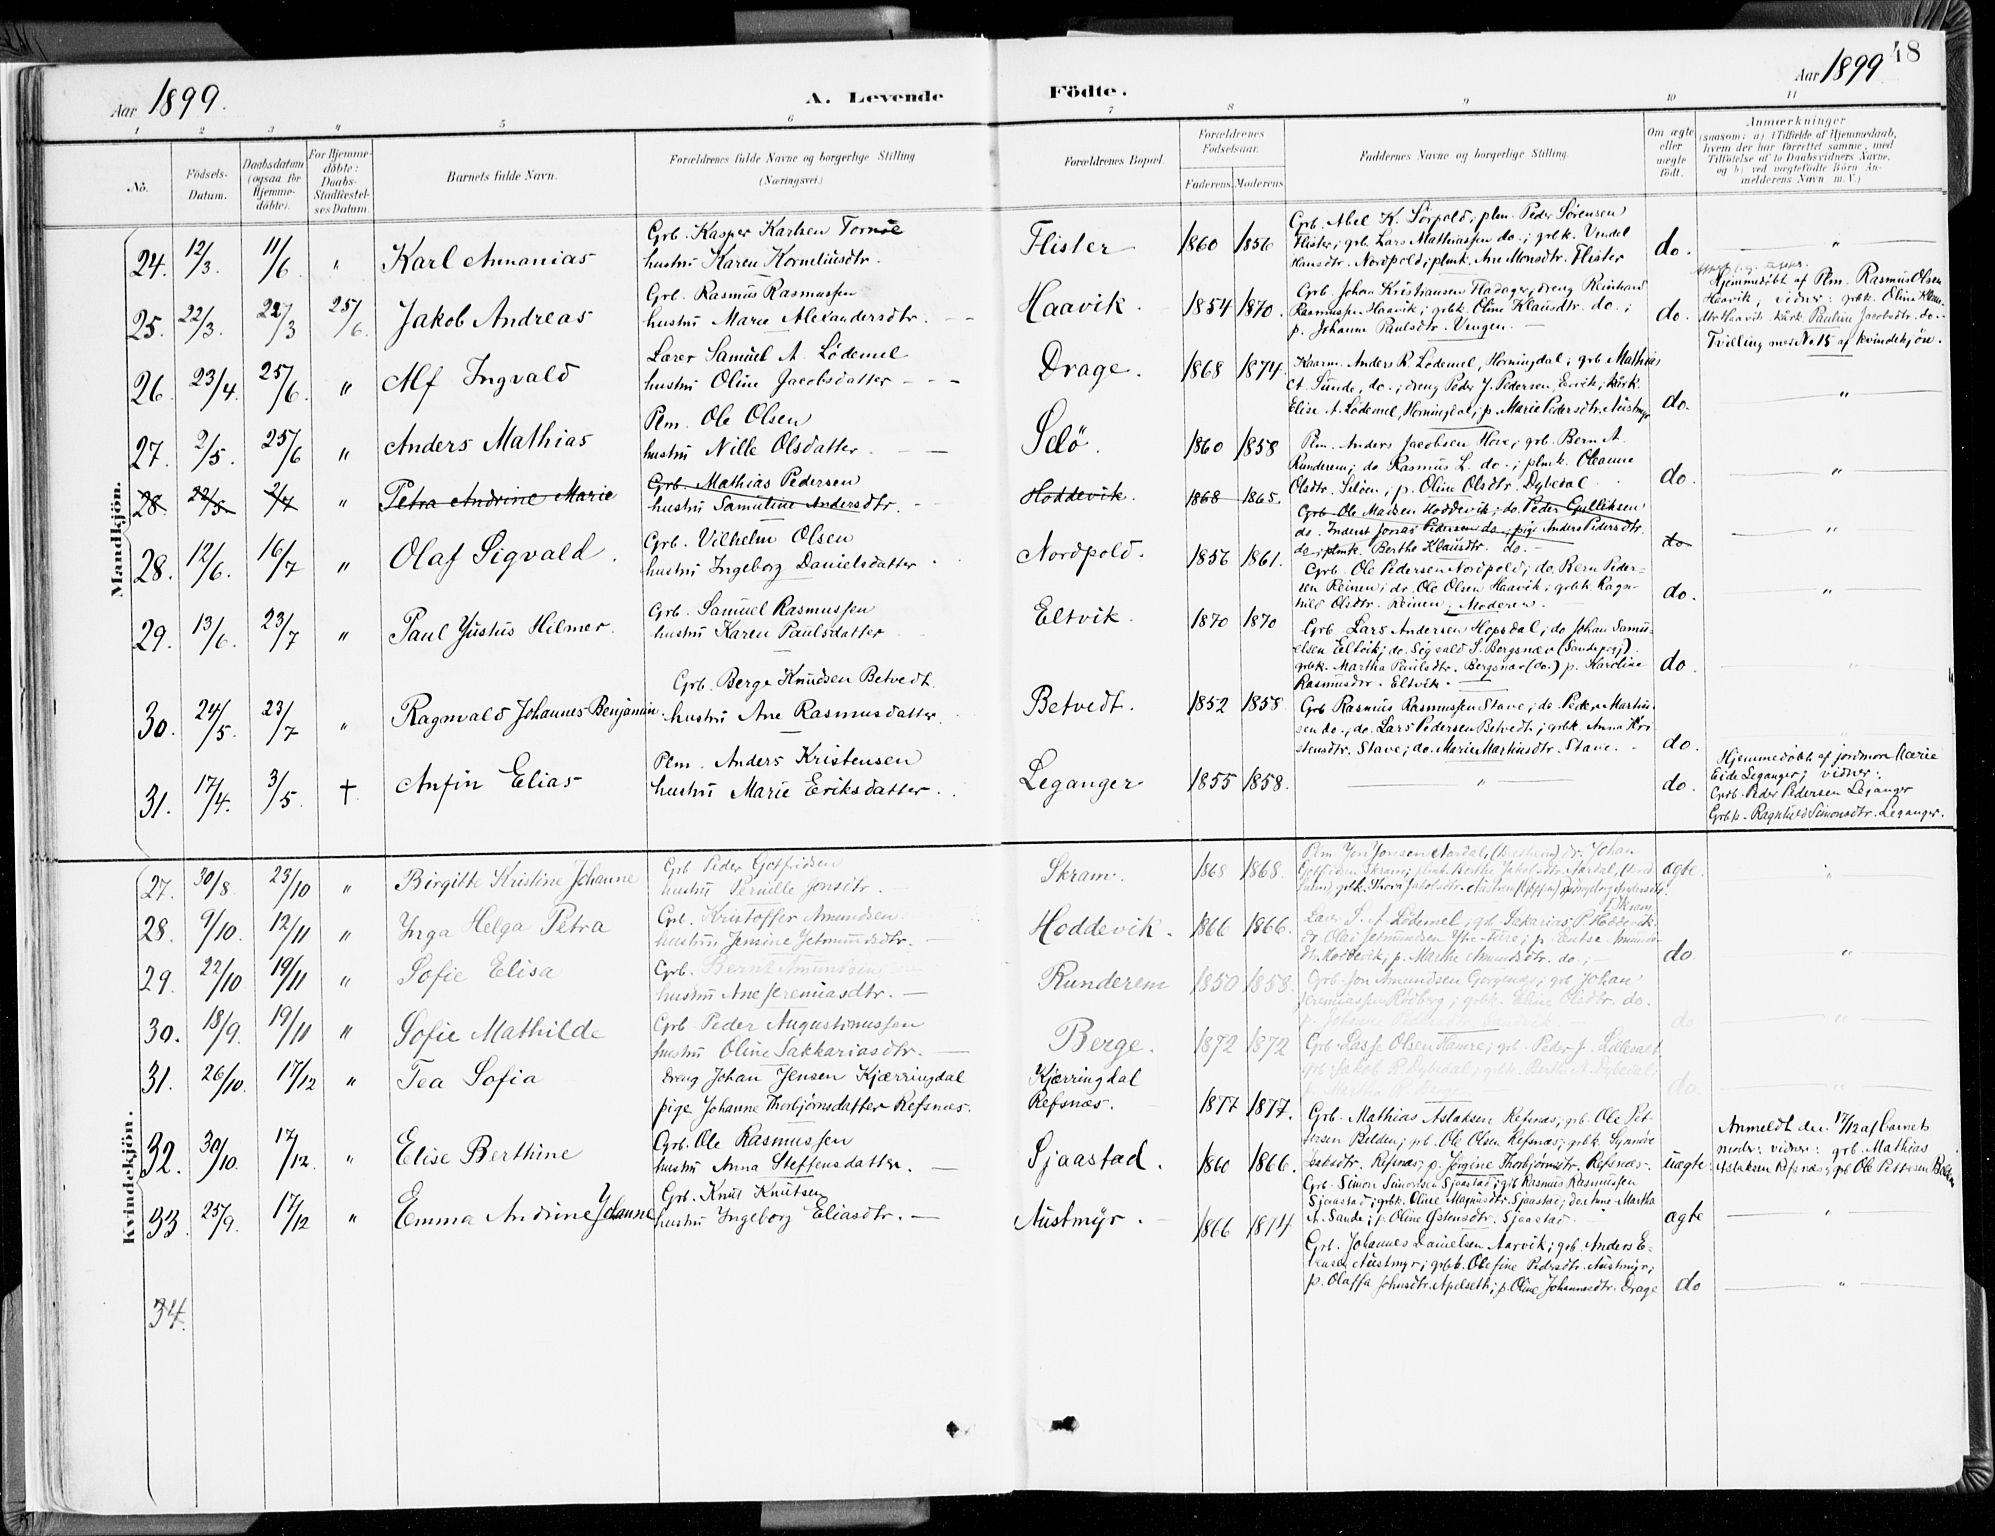 48
Aar 1899.
A. Levende
Födte.
Aar 1899
1 2 3 4 5 6 7 8 9 10 11
No.
Födsels-Datum.
Daabsdatum (ogsaa for Hjemme-döbte).
For Hjemme-döbte: Daabs-Stadfæstelses Datum.
Barnets fulde Navn.
Forældrenes fulde Navne og borgerlige Stilling (Næringsvei.)
Forældrenes Bopæl.
Forældrenes Födselsaar.
Faderens. Moderens.
Faddernes Navne og borgerlige Stilling.
Om ægte eller uægte födt.
Anmærkninger (saasom: a) i Tilfælde af Hjemmedaab, hvem der har forrettet samme, med Tilföielse af to Daabsvidners Navne, og b) ved uægtefödte Börn Anmelderens Navn m. V.)
Mandkjön.
24. 12/3. 11/6 " Karl Annanias
Grb. Kasper Karlsen Tornöe
hustru Karen Korneliusdtr.
Flister 1860 1856
Grb. Abel K. Sörpold; plm. Peder Sörensen
Flister; grb. Lars Mathiassen do.; grbk. Vendel
Hansdtr. Nordpold; plmk. Ane Monsdtr. Flister
do. "
25. 22/3. 22/3 25/6. Jakob Andreas
Grb. Rasmus Rasmussen
hustru Marie Alexandersdtr.
Haavik. 1854 1870.
Grb. Johan Kristiansen Fladager; dreng Reinhard
Rasmussen Haavik; grbk. Oline Klausdtr. do.;
p. Johanne Paulsdtr. Vengen.
do.
Hjemmedöbt af Plm. Rasmus Olsen
Haavik, vidner: grbk. Oline Klausdtr. Haavik, kårk. Pauline Jacobsdtr. do.
Tvilling med No 15 af kvindekjön.
26. 23/4. 25/6. " Alf Ingvald
Lærer Samuel A. Lödemel
hustru Oline Jacobsdatter
Drage. 1868 1874.
Kaarm. Anders R. Lödemel, Horningdal; grb. Mathias
Ct. Sunde, do.; dreng Peder J. Pedersen, Ervik; kårk.
Elise A. Lödemel, Horningdal; p. Marie Pedersdtr. Austmyr
do. "
27. 2/5. 25/6 " Anders Mathias
Plm. Ole Olsen
hustru Nille Olsdatter.
Selö. 1860 1858
Plm. Anders Jacobsen Hove; grb. Bern A.
Runderem; do Rasmus L. do.; plmk. Oleanne
Olsdtr. Selöen; p. Oline Olsdtr. Dybedal
do. "
28. 22/3 2/4 " Petra Andrine Marie
Grb. Mathias Pedersen
hustru Samuline Andersdtr.
Hoddevik. 1868 1865.
Grb. Ole Madsen Hoddevik; do. Peder Gulliksen
do. Inderst Jonas Pedersen do; pige Anders Pedersdtr.
do; plmk. Berthe Klausdtr. do.
do "
28. 12/6. 16/7 " Olaf Sigvald
Grb. Vilhelm Olsen
hustru Ingeborg Danielsdatter
Nordpold. 1856 1861.
Grb. Ole Pedersen Nordpold; do. Bern Pedersen Reinen; dr. Ole Olsen Haavik; grbk. Ragnhild Olsdtr. Reinen; Moderen.
do. "
29. 13/6. 23/7 " Paul Justus Hilmer.
Grb. Samuel Rasmussen
hustru Karen Paulsdatter
Eltvik. 1870 1870
Grb Lars Andersen Hopsdal; do Johan Samuelsen Eltvik; do. Sigvald S. Bergsnæv (Sandeprgj).
grbk. Martha Paulsdtr. Bergsnæv (do.) p. Karoline
Rasmusdtr. Eltvik.
do. "
30. 24/5. 23/7 " Ragnvald Johannes Benjamin.
Grb. Berge Knudsen Betvedt.
hustru Ane Rasmusdatter.
Betvedt. 1852 1858
Grb Rasmus Rasmussen Stave; do. Peder Martinsen do.; do. Lars Pedersen Betvedt; grbk. Anna Kristensdtr. Stave; do. Marie Martinsdtr. Stave.
do. "
31. 17/4. 3/5. † Anfin Elias
Plm. Anders Kristensen
hustru Marie Eriksdatter.
Leganger 1855 1858.
" do.
Hjemmedöbt af jordmor Marie
Eide Leganger; vidner:
Grb. Peder Pedersen Leganger
Grbp. Ragnhild Simonsdtr. Leganger.
Kvindekjön.
27. 30/8. 23/10 " Birgitte Kristine Johanne
Grb Peder Gotfridsen
hustru Pernille Jonsdtr.
Skram. 1868 1868.
Plm Jon Jonsen Aardal, dr. Johan
Gotfridsen Skram; plmk. Berthe Jakobsdtr. Aardal
Skram
ægte. "
28. 9/10. 12/11 " Inga Helga Petra
Grb. Kristoffer Amundsen
hustru Jensine Jetmundsdtr.
Hoddevik. 1866 1866.
Lærer S. A. Lödemel; grb. Sakarias P. Hoddevik;
dr. Olai Jetmundsen Ytre-Fure; p. Entse Amundsdtr. Hoddevik; p. Marthe Amundsdtr. do.;
do. "
29. 22/10 19/11 " Sofie Elisa
Grb. Bernt Amundsen
hustru Ane Jeremiasdtr.
Runderem 1850 1858.
Grb. Jon Amundsen Gangsnes; grb Johan
Jeremiassen Rödberg; grbk. Eline Olsdtr. do.
do "
30. 18/9. 19/11 " Sofie Mathilde
Grb Peder Augustinussen
hustru Oline Sakkariasdtr.
Berge. 1872 1872
Grb. Lasse Olsen Hamre; grb. Peder J. Lillesalt
grb. Jakob R. Dybedal; grbk. Berthe A. Dybedal;
do. "
31. 26/10. 17/12 " Tea Sofia
dreng Johan Jensen Kjærringdal
pige Johanne Thorbjörnsdatter Refsnæs.
Kjærringdal
Refsnæs. 1877 1877.
Grb. Mathias Aslaksen Refsnæs; grb. Ole Pettersen Belden; grb. Ole Olsen Refsnæs; grbk. Synnöve
Isaksdtr. Refsnæs; p. Jörgine Thorbjörnsdtr. Refsnæs
uægte
Anmeldt den 17/12 af barnets
moder: vidner: grb. Mathias
Aslaksen Refsnæs; grb Ole Pettersen Belden
32. 30/10. 17/12. " Elise Berthine
Grb. Ole Rasmussen
hustru Anna Steffensdatter.
Sjaastad. 1860 1866.
Grb. Simon Simonsen Sjaastad; grb Rasmus Rasmussen
Sjaastad; grbk. Oline Magnusdtr. Sjaastad; do Anne-Martha
A. Sande; p. Oline Östensdtr. Sjaastad
ægte "
33. 25/9. 17/12 " Emma Andrine Johanne
Grb. Knut Knutsen
hustru Ingeborg Eliasdtr.
Austmyr. 1866 1874
Grb. Johannes Danielsen Aarvik; grb. Anders Ebensen Austmyr; grbk. Olefine Pedersdtr. Austmyr;
p. Olaffa Johnsdtr. Apelseth; p. Oline Johannesdtr. Drage
do "
34.